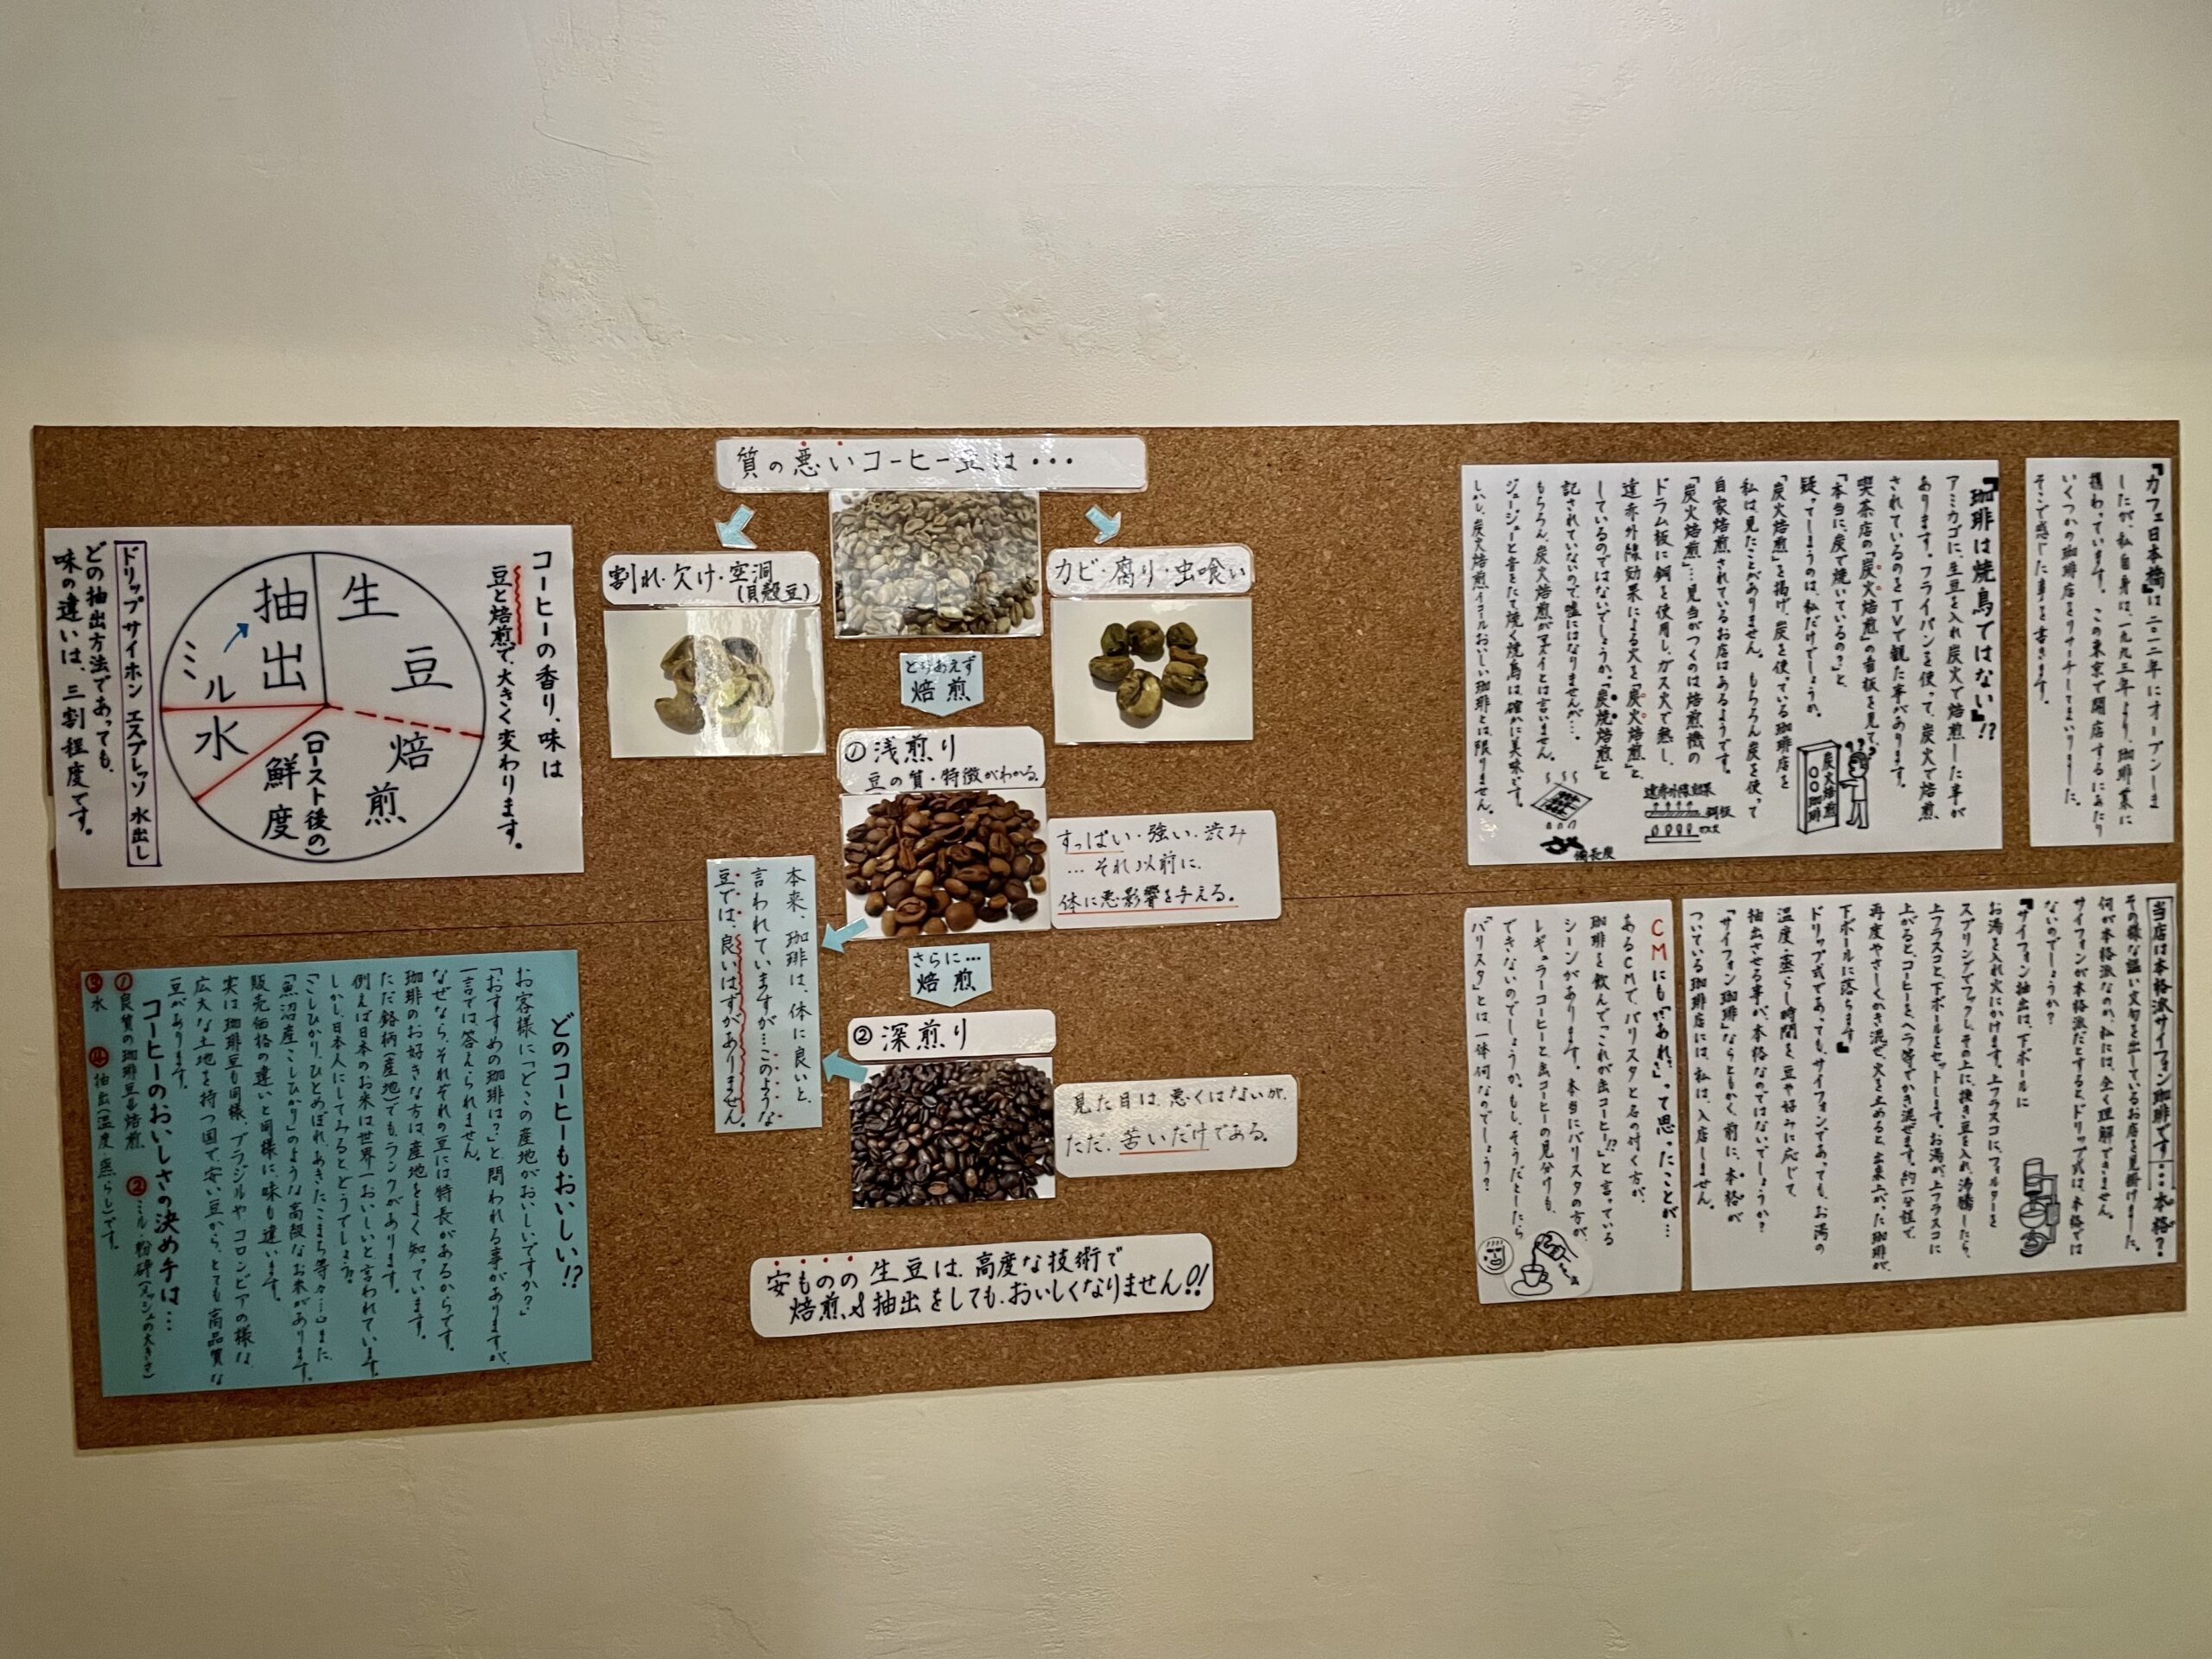 『カフェ日本橋』は二〇二二年にオープンしま
したが、私自身は、一九九三年より、珈琲業に
携わっています。この東京で開店するにあたり
いくつかの珈琲店をリサーチしてまいりました。
そこで感じた事を書きます。
『珈琲は焼鳥ではない』!?
アミカゴに、生豆を入れ炭火で焙煎した事が
あります。フライパンを使って、炭火で焙煎
されているのをTVで観た事があります。
喫茶店の「炭火焙煎」の看板を見て、
「本当に、炭で焼いているの?」と
疑ってしまうのは、私だけでしょうか。
「炭火焙煎」を掲げ、炭を使っている珈琲店を
私は見たことがありません。もちろん炭を使って
自家焙煎されているお店はあるようです。
「炭火焙煎」…見当がつくのは焙煎機の
ドラム板に鋼を使用し、ガス火で熱し、
遠赤外線効果による火を「炭火焙煎」と、
しているのではないでしょうか。「炭焼焙煎」と
記されていないので、嘘にはなりませんが…。
もちろん、炭火焙煎がマズイとは言いません。
ジュージューと音をたて焼く焼鳥は確かに美味です。
しかし、炭火焙煎イコールおいしい珈琲とは限りません。
炭火焙煎
〇〇珈琲
遠赤外線効果
鋼板
ガス
備長炭
質の悪いコーヒー豆は・・・
割れ・欠け・空洞
(貝殻豆)
カビ・腐り・虫喰い
とりあえず
焙煎
①浅煎り
豆の質・特徴がわかる。
すっぱい・強い・渋み
…それ以前に、
体に悪影響を与える。
本来、珈琲は、体に良いと、
言われていますが…このような
豆では、良いはずがありません。
さらに…
焙煎
②深煎り
見た目は、悪くはないが、
ただ、苦いだけである。
安ものの生豆は、高度な技術で
焙煎&抽出をしても、おいしくなりません!!
コーヒーの香り、味は
豆と焙煎で、大きく変わります。
生豆
焙煎
(ロースト後の)
鮮度
水
ミル
抽出
ドリップ サイホン エスプレッソ 水出し
どの抽出方法であっても、
味の違いは、三割程度です。
どのコーヒーもおいしい!?
お客様に「どこの産地がおいしいですか?」
「おすすめの珈琲は?」と問われる事がありますが、
一言では答えられません。
なぜなら、それぞれの豆には特長があるからです。
珈琲のお好きな方は産地をよく知っています。
ただ銘柄(産地)でもランクがあります。
例えば日本のお米は世界一おいしいと言われています。
しかし、日本人にしてみると、どうでしょう?
「こしひかり、ひとめぼれ、あきたこまち等々…」また、
「魚沼産こしひかり」のような高級なお米があります。
販売価格の違いと同様に味も違います。
実は珈琲豆も同様、ブラジルやコロンビアの様な、
広大な土地を持つ国で、安い豆から、とても高品質な
豆があります。
コーヒーのおいしさの決め手は…
①良質の珈琲豆&焙煎 ②ミル・粉砕(メッシュの大きさ)
③水 ④抽出(温度・蒸らし)です。
当店は本格派サイフォン珈琲です…本格?
その様な謳い文句を出しているお店を見掛けました。
何が本格派なのか、私には、全く理解できません。
サイフォンが本格派だとすると、ドリップ式は、本格では
ないのでしょうか?
『サイフォン抽出は、下ボールに
お湯を入れ火にかけます。上フラスコに、フィルターを
スプリングでフックし、その上に、挽き豆を入れ、沸騰したら、
上フラスコと、下ボールをセットします。お湯が、上フラスコに
上がると、コーヒーをヘラ等でかき混ぜます。約一分程で、
再度やさしくかき混ぜ、火を止めると、出来上がった珈琲が、
下ボールに落ちます』
ドリップ式であっても、サイフォンであっても、お湯の
温度・蒸らし時間を、豆や好みに応じて、
抽出させる事が、本格なのではないでしょうか?
「サイフォン珈琲」ならともかく、前に、本格が
ついている珈琲店には、私は、入店しません。
CMにも「あれ?」って思ったことが…
あるCMで、バリスタと名の付く方が、
珈琲を飲んで「これが缶コーヒー!?」と言っている
シーンがあります。本当にバリスタの方が、
レギュラーコーヒーと、缶コーヒーの見分けも、
できないのでしょうか。もし、そうだとしたら
「バリスタ」とは、一体何なのでしょう?